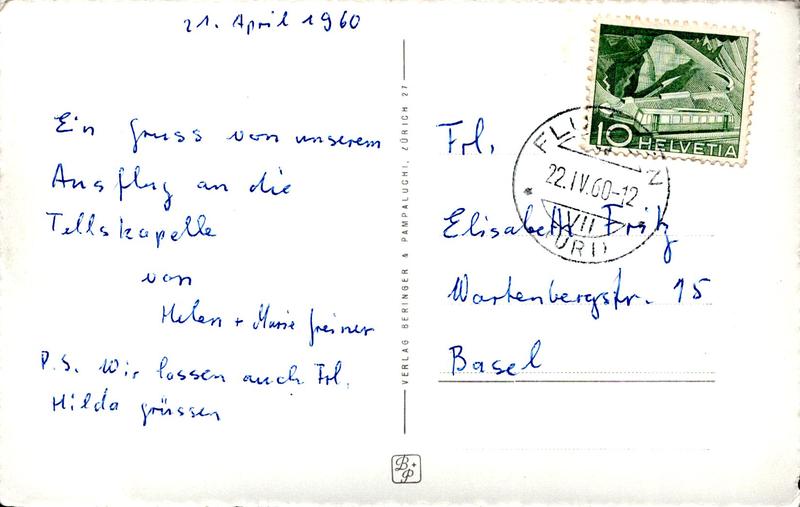 21. April 1960
Ein Gruss von unserem
Ausflug an die
Tellskapelle
von
Helen + Marie Greiner
P.S. Wir lassen auch Frl.
Hilda grüssen
VERLAG BERINGER & PAMPALUCHI, ZÜRICH 27
B+P
10 HELVETIA
22.IV.60-12
(URI)
Frl.
Elisabeth Fritz
Wartenbergstr. 15
Basel